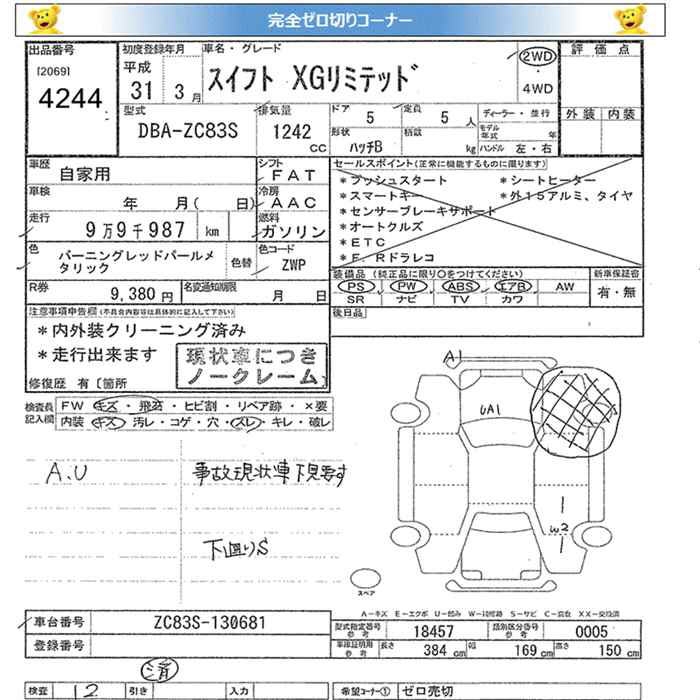 完全ゼロ切りコーナー
出品番号
[2069]
4244
初度登録年月
平成
31 3月
車名・グレード
スイフト XGリミテッド
2WD
・
4WD
評価点
外装 内装
型式
DBA-ZC83S
排気量
1242
CC
ドア 5
定員 5 人
形状 ハッチB
積載 kg
ディーラー・並行
モデル年式 年
ハンドル 左・右
車歴 自家用
シフト FAT
車検 年 月( 日)
冷房 AAC
走行 9万9千987 km
燃料 ガソリン
色 バーニングレッドパールメタリック
色替
色コード ZWP
R券 9,380円
名変通知期限 月 日
セールスポイント(正常に機能するものに限ります)
*プッシュスタート *シートヒーター
*スマートキー *外15アルミ、タイヤ
*センサーブレーキサポート
*オートクルズ
*ETC
*F.Rドラレコ
装備品 (純正品に限り○をつけてください)
PS PW ABS エアB AW
SR ナビ TV カワ
新車保証書
有・無
後日品
注意事項申告欄(不具合内容等は具体的に記入して下さい)
*内外装クリーニング済み
*走行出来ます
現状車につき
ノークレーム
修復歴 有〔箇所
検査員記入欄
FW キズ・飛石・ヒビ割・リペア跡・×要
内装 キズ・汚レ・コゲ・穴・スレ・キレ・破レ
A,U
事故現状車下見要す
下廻りS
A1
UA1
W2
スペア
A-キズ E-エクボ U-凹み W-補修跡 S-サビ C-腐食 XX-交換済
車台番号 ZC83S-130681
登録番号
型式指定番号 参考 18457
類別区分番号 参考 0005
車庫証明用 参考 長さ 384 cm 幅 169 cm 高さ 150 cm
済
検査 12 引き 入力
希望コーナー① ゼロ売切